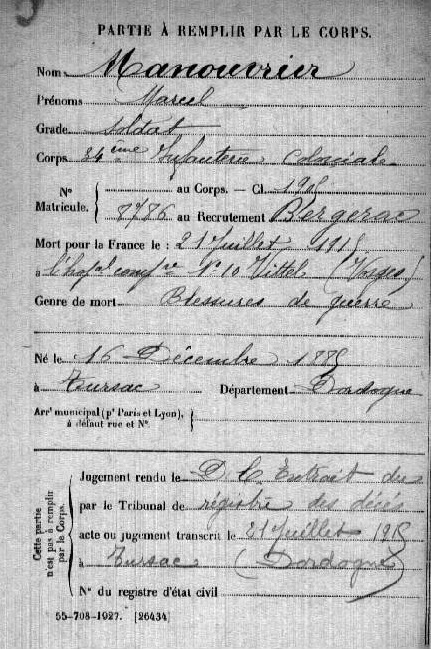 PARTIE À REMPLIR PAR LE CORPS.
Nom Manouvrier
Prénoms Marcel
Grade soldat
Corps 34ème Infanterie Coloniale
N° Matricule. { au Corps. — Cl. 1905
8786 au Recrutement Bergerac
Mort pour la France le : 21 Juillet 1915
à l'hopal compre N°10 Vittel (Vosges)
Genre de mort Blessures de guerre
Né le 16 Décembre 1885
à Tursac Département Dordogne
Arrt municipal (pr Paris et Lyon), à défaut rue et N°.
Cette partie n'est pas à remplir par le Corps.
Jugement rendu le D.C. Extrait du
par le Tribunal de régistre des décès
acte ou jugement transcrit le 21 Juillet 1915
à Tursac (Dordogne)
N° du registre d'état civil
55-708-1927. [26434]